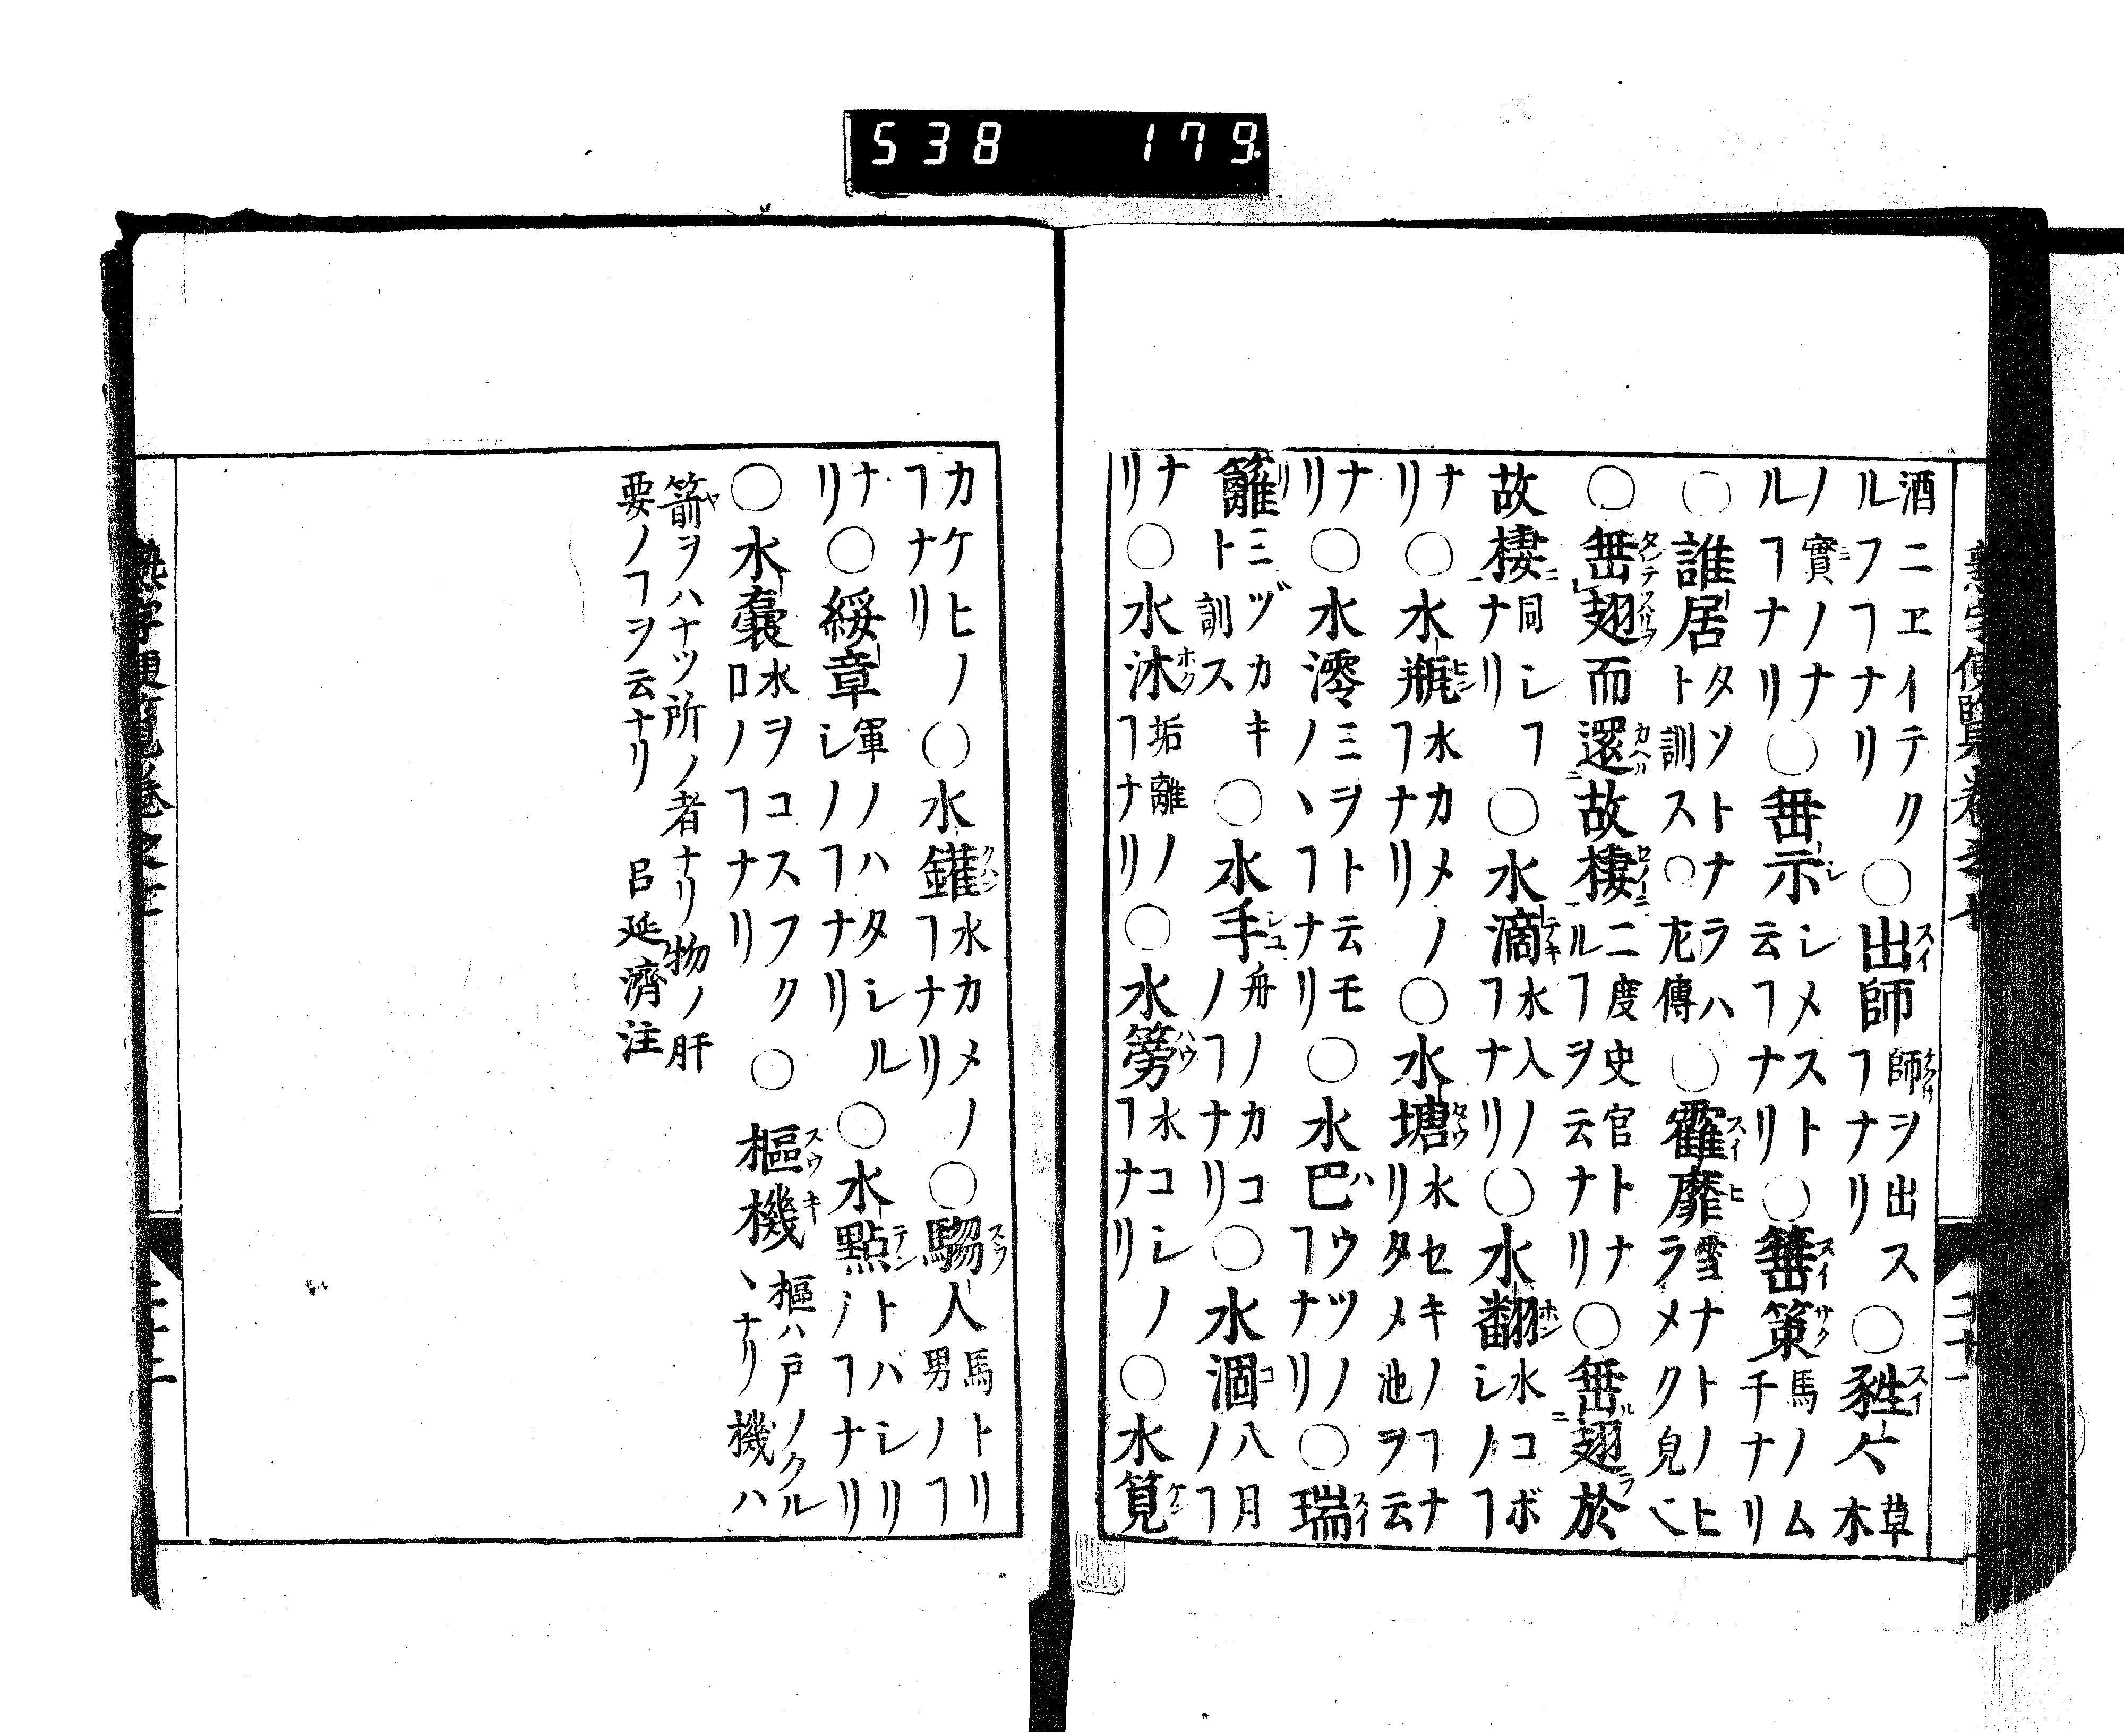 538 179
酒ニヱイテク
ルフヿナリ
○出師
師ヲ出ス
ヿナリ
○甤々
草
木
ノ實ノナ
ルヿナリ
○垂示
シメスト
云ヿナリ
○箠策
馬ノム
チナリ
○誰居
タソトナラハ
ト訓ス○左傳
○靃靡
雪ナトノヒ
ラメク皃
○垂翅而還故棲
二度史官トナ
ルヿヲ云ナリ
○垂翅於
故棲
同シヿ
ナリ
○水滴
水入ノ
ヿナリ
○水翻
水コボ
シノヿ
ナリ
○水瓶
水カメノ
ヿナリ
○水塘
水セキノヿナ
リタメ池ヲ云
ナリ
○水澪
ミヲト云モ
ノヽヿナリ
○水巴
ウツノ
ヿナリ
○瑞
籬
ミヅカキ
ト訓ス
○水手
舟ノカコ
ノヿナリ
○水涸
八月
ノヿ
ナリ
○水沐
垢離ノ
ヿナリ
○水篣
水コシノ
ヿナリ
○水筧
カケヒノ
ヿナリ
○水鑵
水カメノ
ヿナリ
○騶人
馬トリ
男ノヿ
ナリ
○綏章
軍ノハタシル
シノヿナリ
○水點
トバシリ
ノヿナリ
○水囊
水ヲコスフク
ロノヿナリ
○樞機
樞ハ戸ノクル
ヽナリ機ハ
箭ヲハナツ所ノ者ナリ物ノ肝
要ノヿヲ云ナリ 呂延濟注